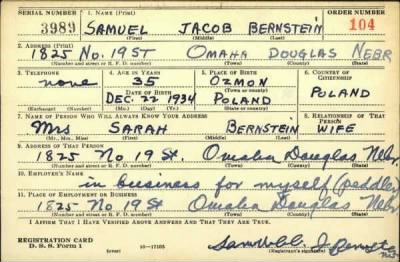 SERIAL NUMBER 1. NAME (Print) ORDER NUMBER
3989 SAMUEL JACOB BERNSTEIN 104
(First) (Middle) (Last)
2. ADDRESS (Print)
1825 No. 19 ST OMAHA DOUGLAS NEBR
(Number and street or R. F. D. number) (Town) (County) (State)
3. TELEPHONE 4. AGE IN YEARS 5. PLACE OF BIRTH 6. COUNTRY OF CITIZENSHIP
none 35 OZMON POLAND
DATE OF BIRTH (Town or county)
DEC. 22 1934 POLAND
(Exchange) (Number) (Mo.) (Day) (Yr.) (State or country)
7. NAME OF PERSON WHO WILL ALWAYS KNOW YOUR ADDRESS 8. RELATIONSHIP OF THAT PERSON
Mrs SARAH BERNSTEIN WIFE
(Mr., Mrs., Miss) (First) (Middle) (Last)
9. ADDRESS OF THAT PERSON
1825 No 19 St. Omaha Douglas Nebr.
(Number and street or R. F. D. number) (Town) (County) (State)
10. EMPLOYER'S NAME
in business for myself (peddler
11. PLACE OF EMPLOYMENT OR BUSINESS
1825 No 19 St Omaha Douglas Nebr
(Number and street or R. F. D. number) (Town) (County) (State)
I AFFIRM THAT I HAVE VERIFIED ABOVE ANSWERS AND THAT THEY ARE TRUE.
REGISTRATION CARD
D. S. S. Form 1 (over) 16—17105 (Registrant's signature)